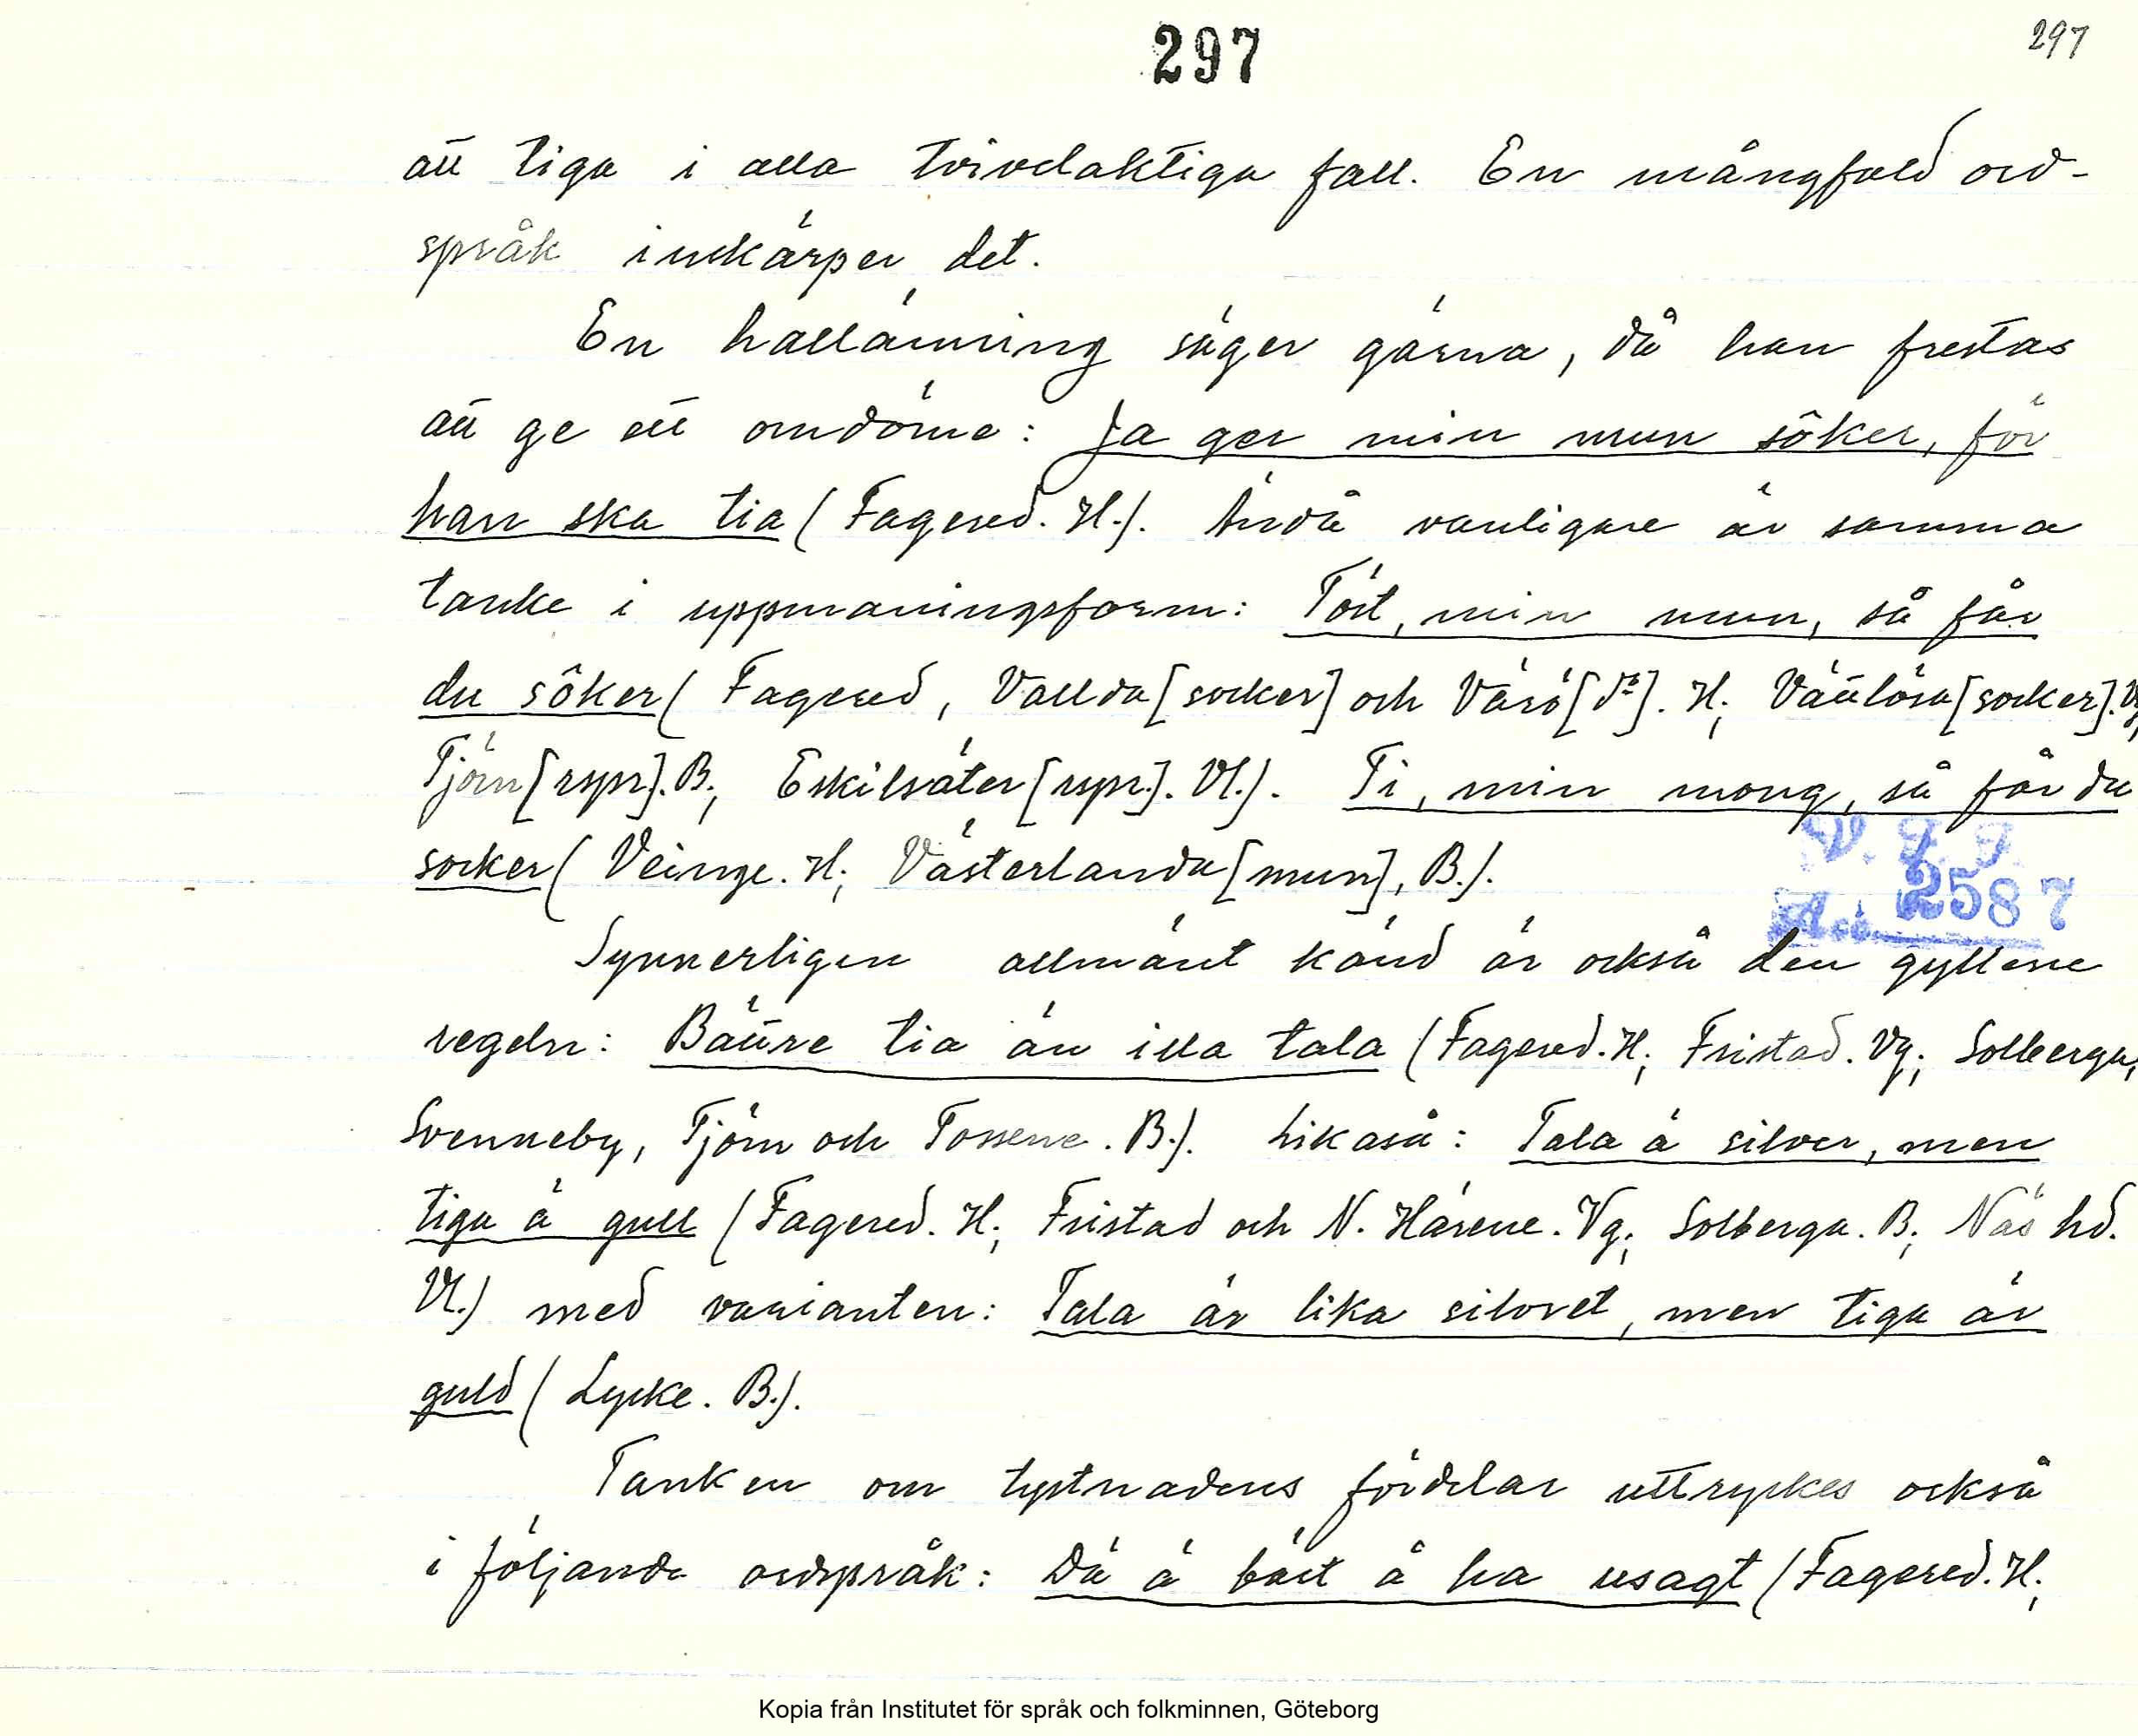 297
297
att tiga i alla tvivelaktiga fall. En mångfald ord-
språk inskärper det.
En hallänning säger gärna, då han frestas
att ge ett omdöme: Ja ger min mun sôker, för
han ska tia (Fagered. H.). Ändå vanligare är samma
tanke i uppmaningsform: Töst, min mun, så får
du sôker (Fagered, Vallda [socker] och Värö [do]. H; Vättlösa [socker]. Vg;
Tjörn [rspr]. B; Eskilsäter [rspr.]. Vl.). Ti, min mong, så får du
socker (Veinge. H; Västerlanda [mun], B.).
V. F. F.
Acc. 2587
Synnerligen allmänt känd är också den gyllene
regeln: Bättre tia än illa tala (Fagered. H; Fristad. Vg; Solberga,
Svenneby, Tjörn och Tossene. B.). Likaså: Tala ä silver, men
tiga ä gull (Fagered. H; Fristad och N. Härene. Vg; Solberga. B; Näs hd.
Vl.) med varianten: Tala är lika silvret, men tiga är
guld (Lycke. B.).
Tanken om tystnadens fördelar uttryckes också
i följande ordspråk: Dä ä bäst å ha usagt (Fagered. H;
Kopia från Institutet för språk och folkminnen, Göteborg